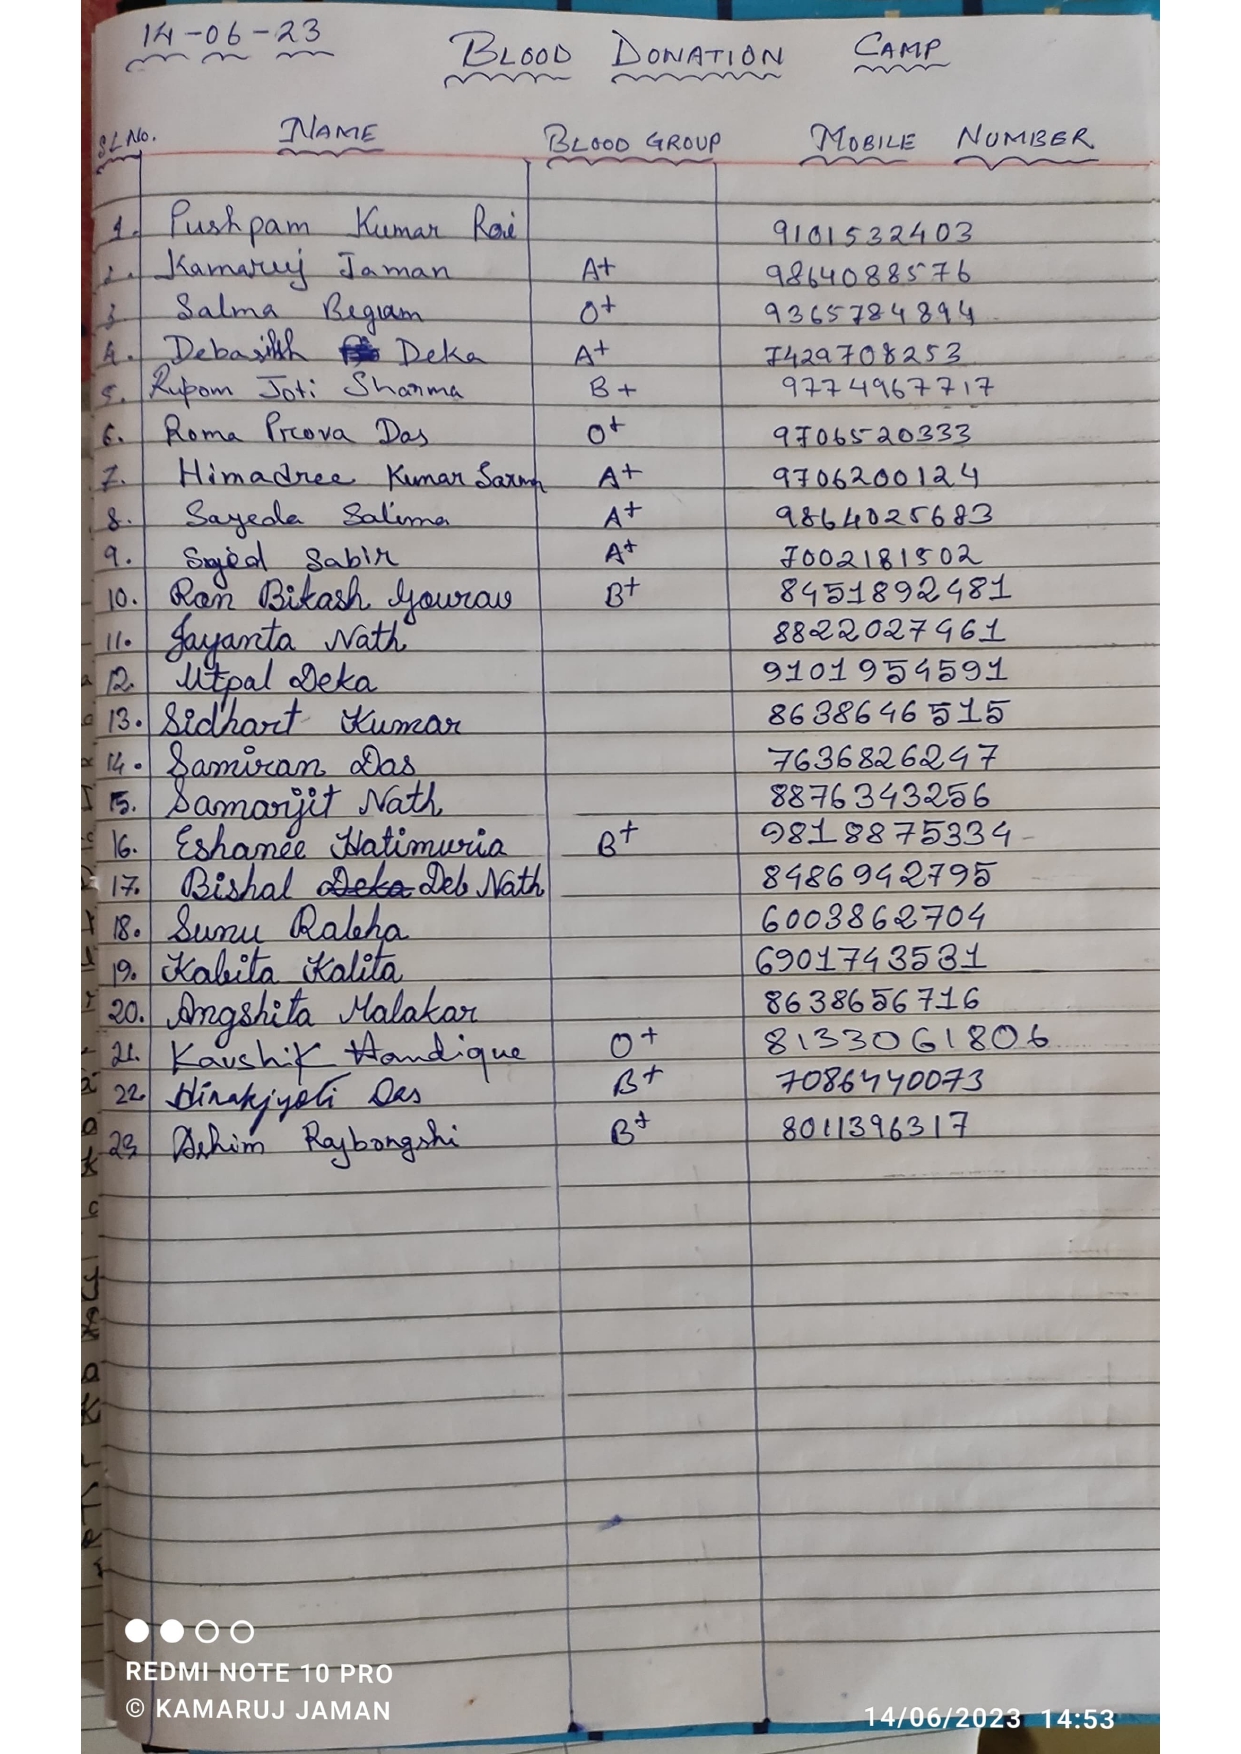 14-06-23 BLOOD DONATION CAMP
SL No. NAME BLOOD GROUP MOBILE NUMBER
1. Pushpam Kumar Rai 9101532403
2. Kamaruj Jaman A+ 9864088576
3. Salma Begam O+ 9365784894
4. Debasish Deka A+ 7429708253
5. Rupom Joti Sharma B+ 9774967717
6. Roma Prova Das O+ 9706520333
7. Himadree Kumar Sarma A+ 9706200124
8. Sayeda Salima A+ 9864025683
9. Syed Sabir A+ 7002181502
10. Ran Bikash Gourav B+ 8451892481
11. Jayanta Nath 8822027961
12. Utpal Deka 9101954591
13. Sidhart Kumar 8638646515
14. Samiran Das 7636826247
15. Samarjit Nath 8876343256
16. Eshanee Hatimuria B+ 9818875334
17. Bishal Deka Deb Nath 8486942795
18. Sunu Rabha 6003862704
19. Kabita Kalita 6901743531
20. Angshita Malakar 8638656716
21. Kaushik Handique O+ 8133061806
22. Hirakjyoti Das B+ 7086440073
23 Ashim Rajbongshi B+ 8011396317
REDMI NOTE 10 PRO
© KAMARUJ JAMAN
14/06/2023 14:53